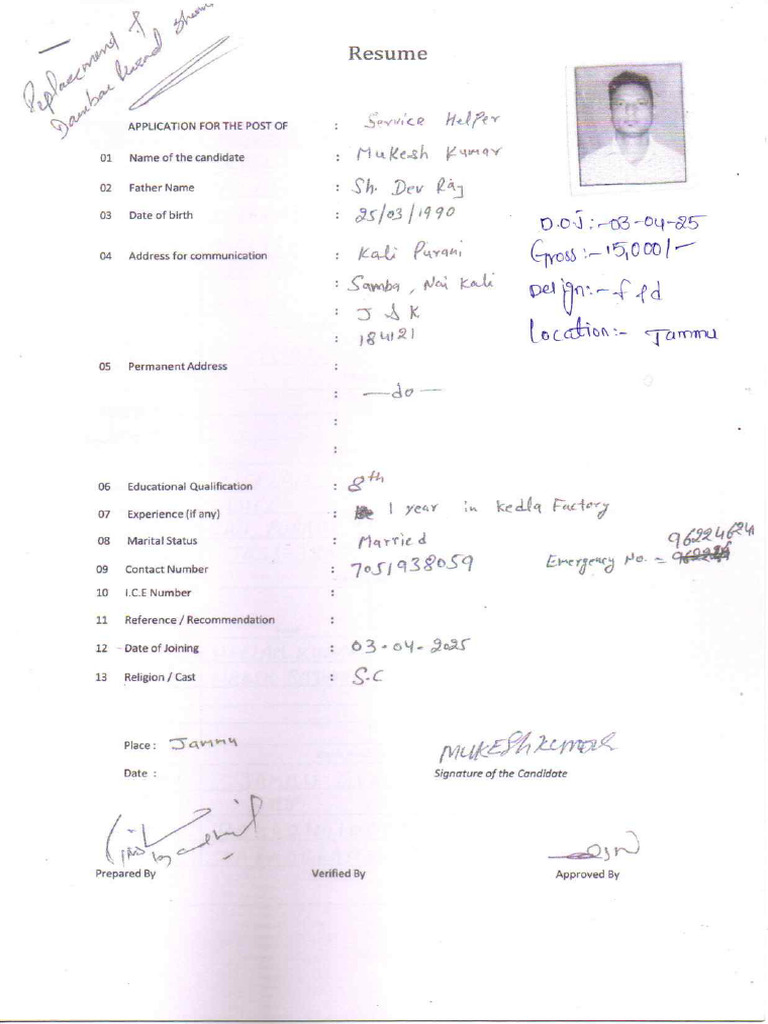 Replacement of
Resume
APPLICATION FOR THE POST OF : Service Helper
01 Name of the candidate : Mukesh Kumar
02 Father Name : Sh. Dev Raj
03 Date of birth : 25/03/1990
D.O.J:-03-04-25
04 Address for communication : Kali Purani
Gross:-15,000/-
: Samba, Nai Kali
Design:-
: J & K
: 184121
Location:- Jammu
05 Permanent Address :
: —do—
:
:
06 Educational Qualification : 8th
07 Experience (if any) : 1 year in Kedla Factory
08 Marital Status : Married
09 Contact Number : 7051938059
Emergency No. = 96224624
10 I.C.E Number :
11 Reference / Recommendation :
12 Date of Joining : 03-04-2025
13 Religion / Cast : S.C
Place : Jammu
MUKESh kumar
Date :
Signature of the Candidate
Prepared By Verified By Approved By